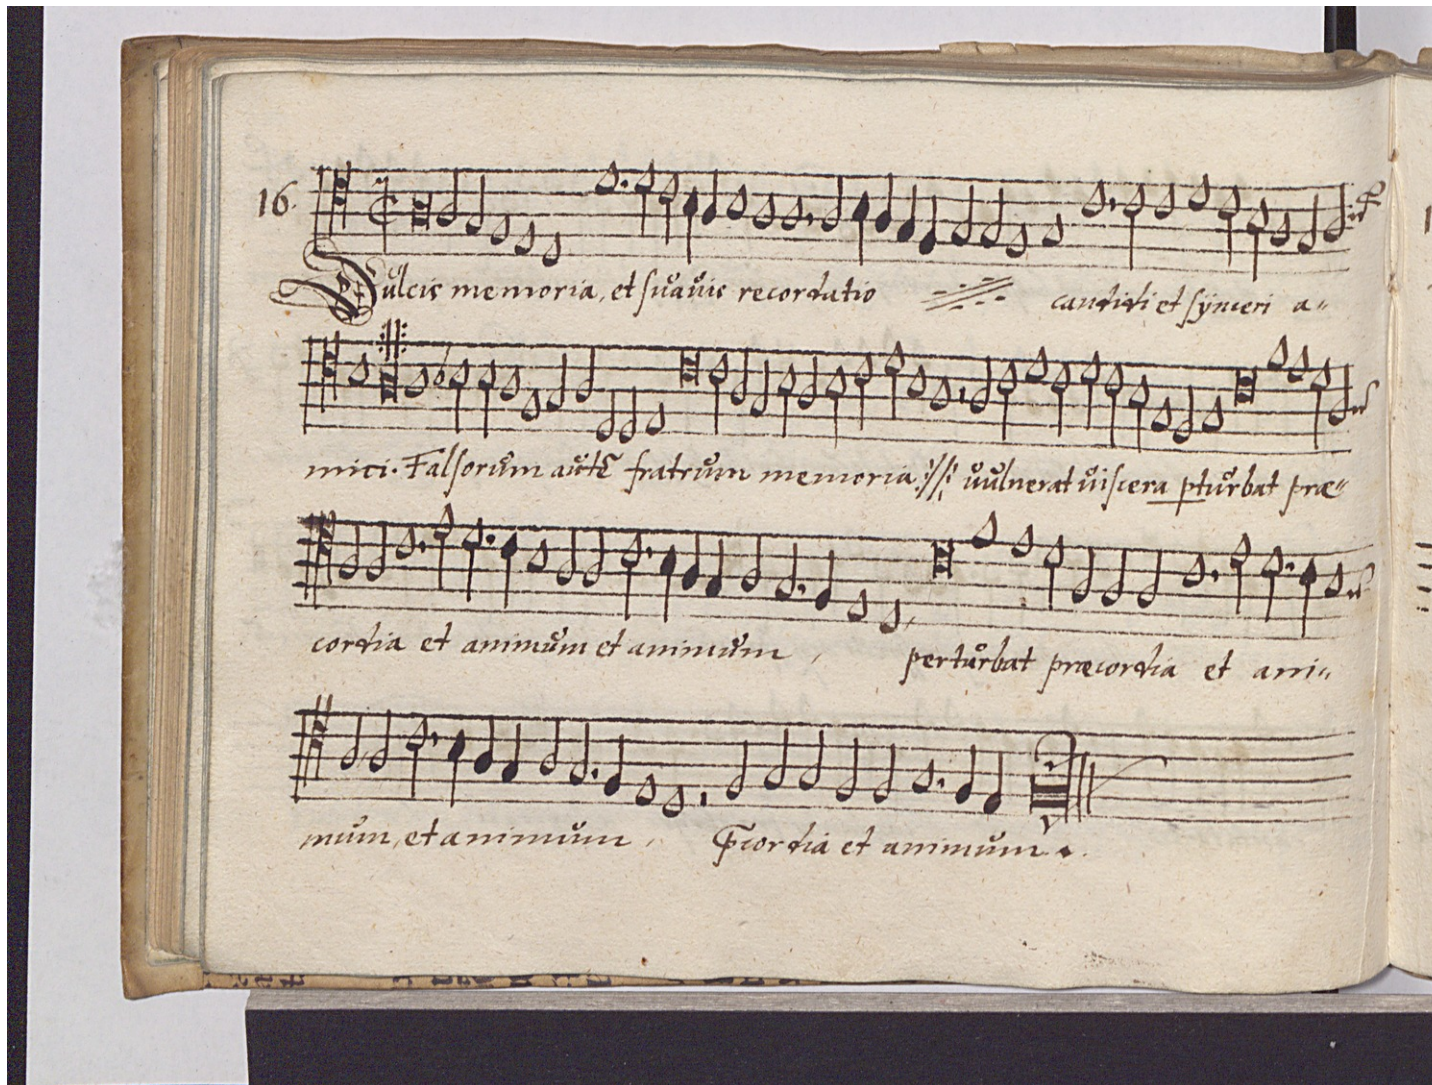 16.
Dulcis memoria, et suauis recordatio candidi et synceri a-
mici. Falsorum autē fratrum memoria :/: uulnerat uiscera pturbat præ-
cordia et animum et animum, perturbat præcordia et ani-
mum, et animum, Pcordia et animum.